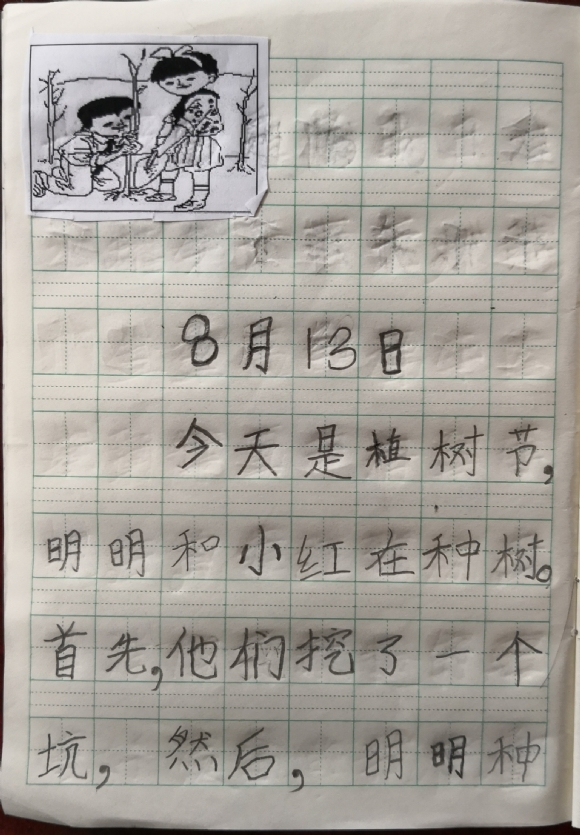 8月13日
今天是植树节,
明明和小红在种树。
首先,他们挖了一个
坑,然后,明明种